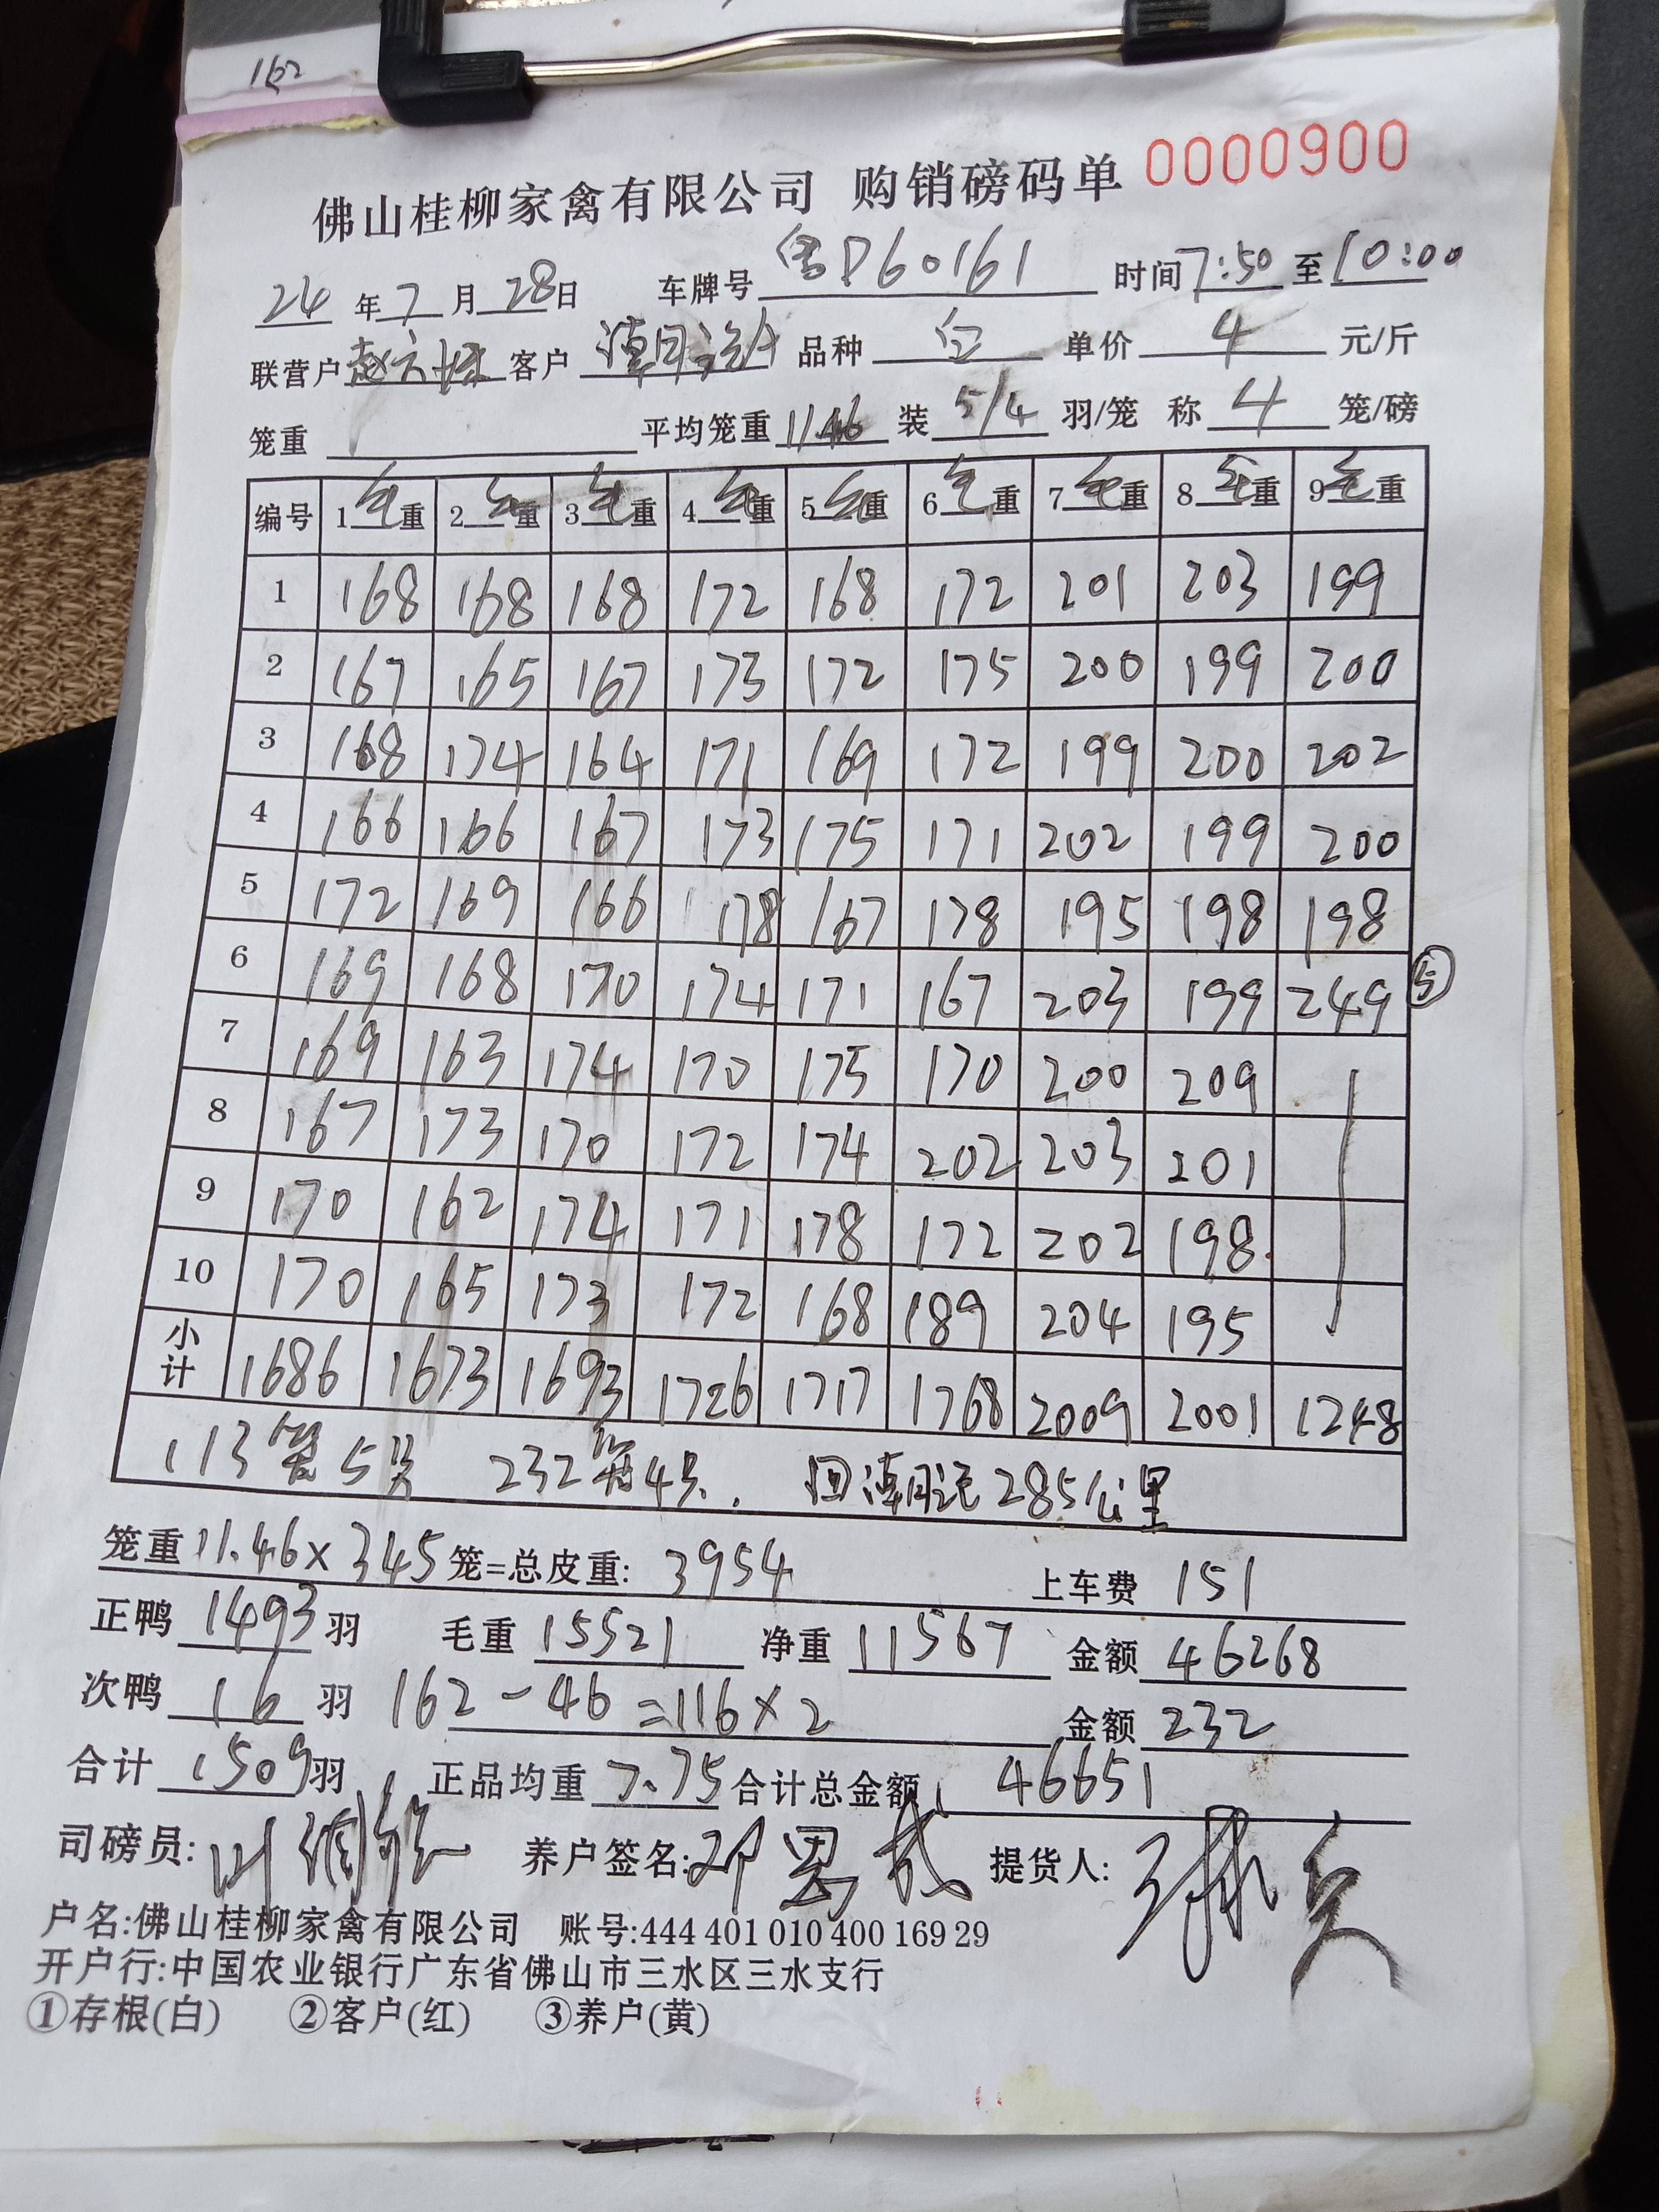 162
佛山桂柳家禽有限公司 购销磅码单 0000900
24 年 7 月 28 日 车牌号 粤P60161 时间 7:50 至 10:00
联营户 客户 品种 白 单价 4 元/斤
笼重 平均笼重 11.46 装 5/4 羽/笼 称 4 笼/磅
编号 1 毛重 2 毛重 3 毛重 4 毛重 5 毛重 6 毛重 7 毛重 8 毛重 9 毛重
1 168 168 168 172 168 172 201 203 199
2 167 165 167 173 172 175 200 199 200
3 168 174 164 171 169 172 199 200 202
4 166 166 167 173 175 171 202 199 200
5 172 169 166 178 167 178 195 198 198
6 169 168 170 174 171 167 203 199 249 ⑤
7 169 163 174 170 175 170 200 209
8 167 173 170 172 174 202 203 201
9 170 162 174 171 178 172 202 198
10 170 165 173 172 168 189 204 195
小计 1686 1673 1693 1726 1717 1768 2009 2001 1248
113笼5只 232笼4只. 回 285公里
笼重 11.46 × 345 笼=总皮重: 3954 上车费 151
正鸭 1493 羽 毛重 15521 净重 11567 金额 46268
次鸭 16 羽 162-46=116×2 金额 232
合计 1509 羽 正品均重 7.75 合计总金额 46651
司磅员: 养户签名: 提货人:
户名:佛山桂柳家禽有限公司 账号:444 401 010 400 169 29
开户行:中国农业银行广东省佛山市三水区三水支行
①存根(白) ②客户(红) ③养户(黄)